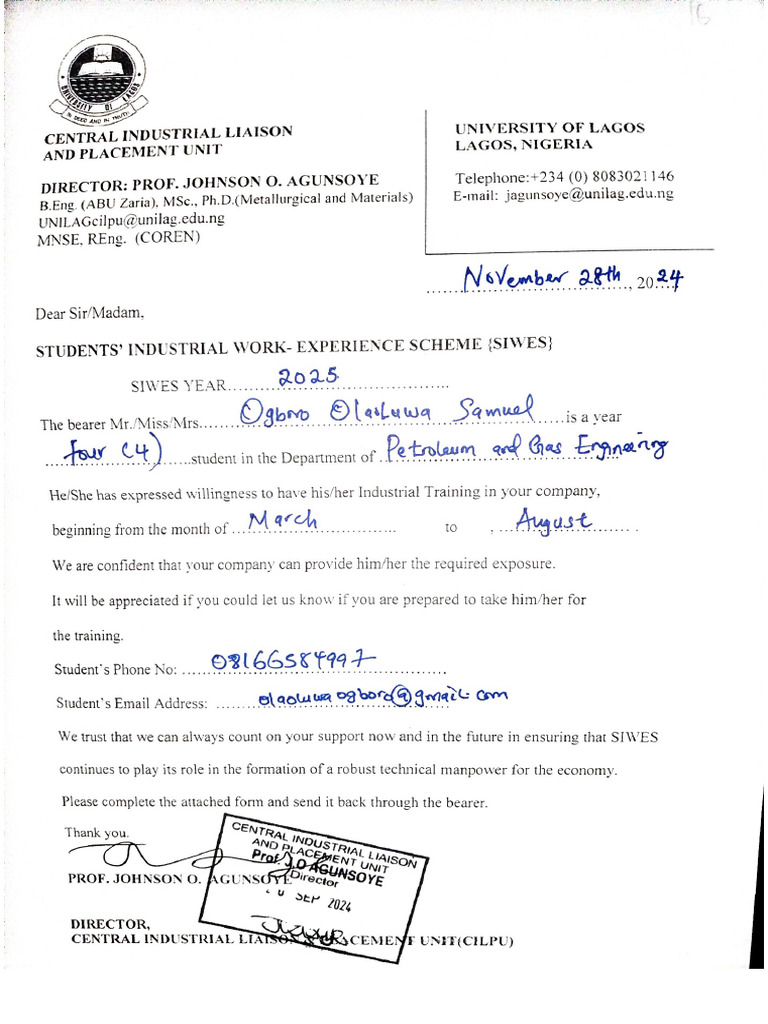 6
UNIVERSITY OF LAGOS
IN DEED AND IN TRUTH
CENTRAL INDUSTRIAL LIAISON
AND PLACEMENT UNIT
DIRECTOR: PROF. JOHNSON O. AGUNSOYE
B.Eng. (ABU Zaria), MSc., Ph.D.(Metallurgical and Materials)
UNILAGcilpu@unilag.edu.ng
MNSE, REng. (COREN)
UNIVERSITY OF LAGOS
LAGOS, NIGERIA
Telephone:+234 (0) 8083021146
E-mail: jagunsoye@unilag.edu.ng
November 28th, 2024
Dear Sir/Madam,
STUDENTS' INDUSTRIAL WORK- EXPERIENCE SCHEME {SIWES}
SIWES YEAR 2025
The bearer Mr./Miss/Mrs. Ogboro Olaoluwa Samuel is a year
four (4) student in the Department of Petroleum and Gas Engineering
He/She has expressed willingness to have his/her Industrial Training in your company,
beginning from the month of March to , August .
We are confident that your company can provide him/her the required exposure.
It will be appreciated if you could let us know if you are prepared to take him/her for
the training.
Student's Phone No: 08166584997
Student's Email Address: olaoluwaogboro@gmail.com
We trust that we can always count on your support now and in the future in ensuring that SIWES
continues to play its role in the formation of a robust technical manpower for the economy.
Please complete the attached form and send it back through the bearer.
Thank you.
PROF. JOHNSON O. AGUNSOYE
DIRECTOR,
CENTRAL INDUSTRIAL LIAISON & PLACEMENT UNIT(CILPU)
CENTRAL INDUSTRIAL LIAISON
AND PLACEMENT UNIT
Prof. J.O AGUNSOYE
Director
SEP 2024